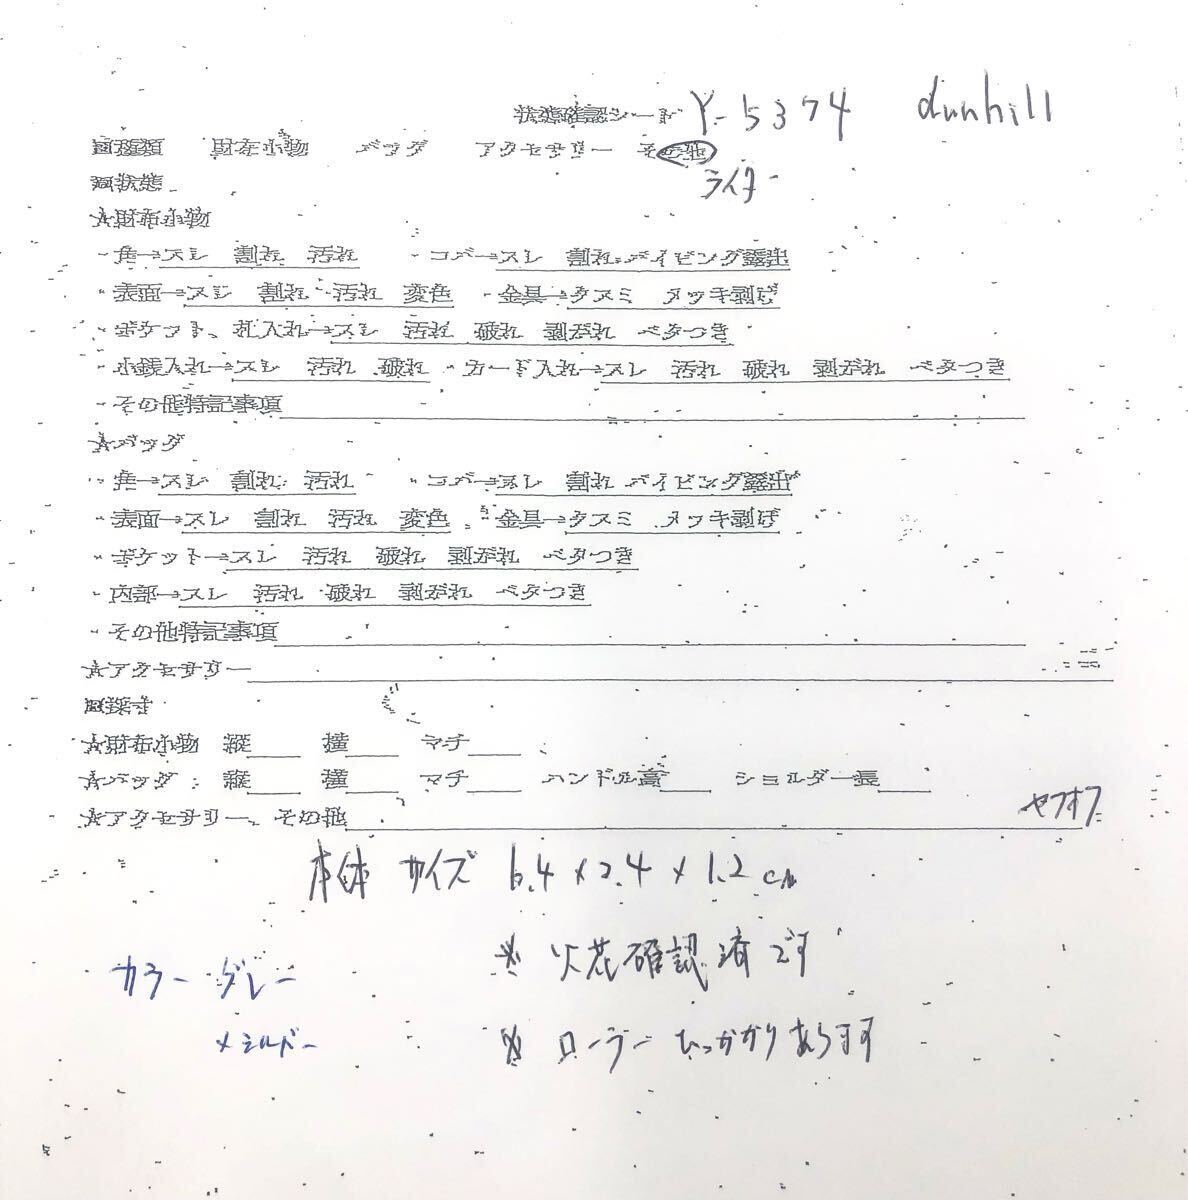 状態確認シート Y-5374 dunhill
■種類 財布小物 バッグ アクセサリー その他
ライター
■状態
★財布小物
・角→スレ 割れ 汚れ ・コバ→スレ 割れ パイピング露出
・表面→スレ 割れ 汚れ 変色 ・金具→クスミ メッキ剥げ
・ポケット、札入れ→スレ 汚れ 破れ 剥がれ ベタつき
・小銭入れ→スレ 汚れ 破れ ・カード入れ→スレ 汚れ 破れ 剥がれ ベタつき
・その他特記事項
★バッグ
・角→スレ 割れ 汚れ ・コバ→スレ 割れ パイピング露出
・表面→スレ 割れ 汚れ 変色 ・金具→クスミ メッキ剥げ
・ポケット→スレ 汚れ 破れ 剥がれ ベタつき
・内部→スレ 汚れ 破れ 剥がれ ベタつき
・その他特記事項
★アクセサリー
■採寸
★財布小物 縦 横 マチ
★バッグ: 縦 横 マチ ハンドル高 ショルダー長
★アクセサリー、その他
ヤフオフ
本体 サイズ 6.4×2.4×1.2cm
※ 火花確認済です
カラー グレー
×シルバー
※ ローラーひっかかりあります